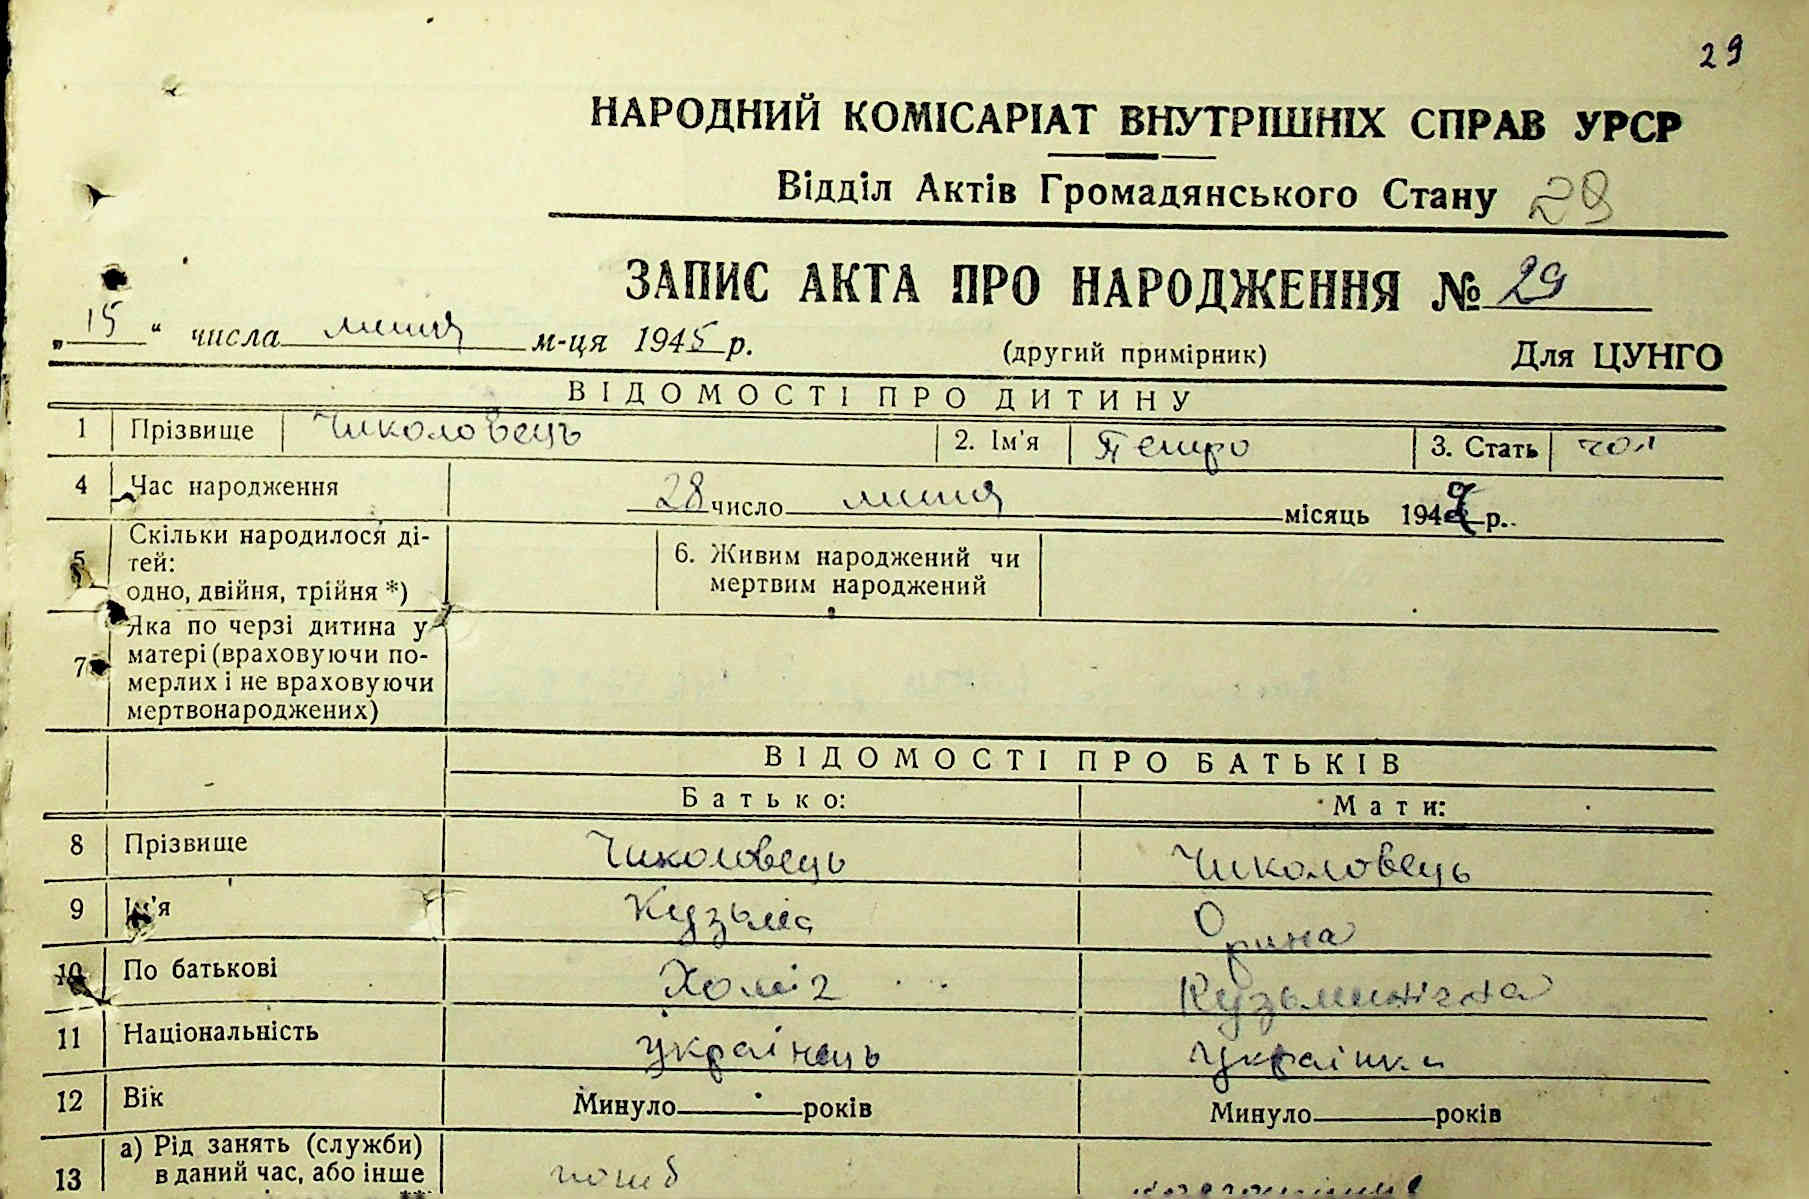 29
НАРОДНИЙ КОМІСАРІАТ ВНУТРІШНІХ СПРАВ УРСР
Відділ Актів Громадянського Стану 29
ЗАПИС АКТА ПРО НАРОДЖЕННЯ № 29
„15“ числа липня м-ця 1945 р. (другий примірник) Для ЦУНГО
ВІДОМОСТІ ПРО ДИТИНУ
1 Прізвище Чиколовець 2. Ім'я Петро 3. Стать чол
4 Час народження 28 число липня місяць 194 р.
5 Скільки народилося ді-
тей:
одно, двійня, трійня *)
6. Живим народжений чи
мертвим народжений
7 Яка по черзі дитина у
матері (враховуючи по-
мерлих і не враховуючи
мертвонароджених)
ВІДОМОСТІ ПРО БАТЬКІВ
Батько: Мати:
8 Прізвище Чиколовець Чиколовець
9 Ім'я Кузьма Орина
10 По батькові Хоміч Кузьминічна
11 Національність українець українка
12 Вік Минуло років Минуло років
13 а) Рід занять (служби)
в даний час, або інше